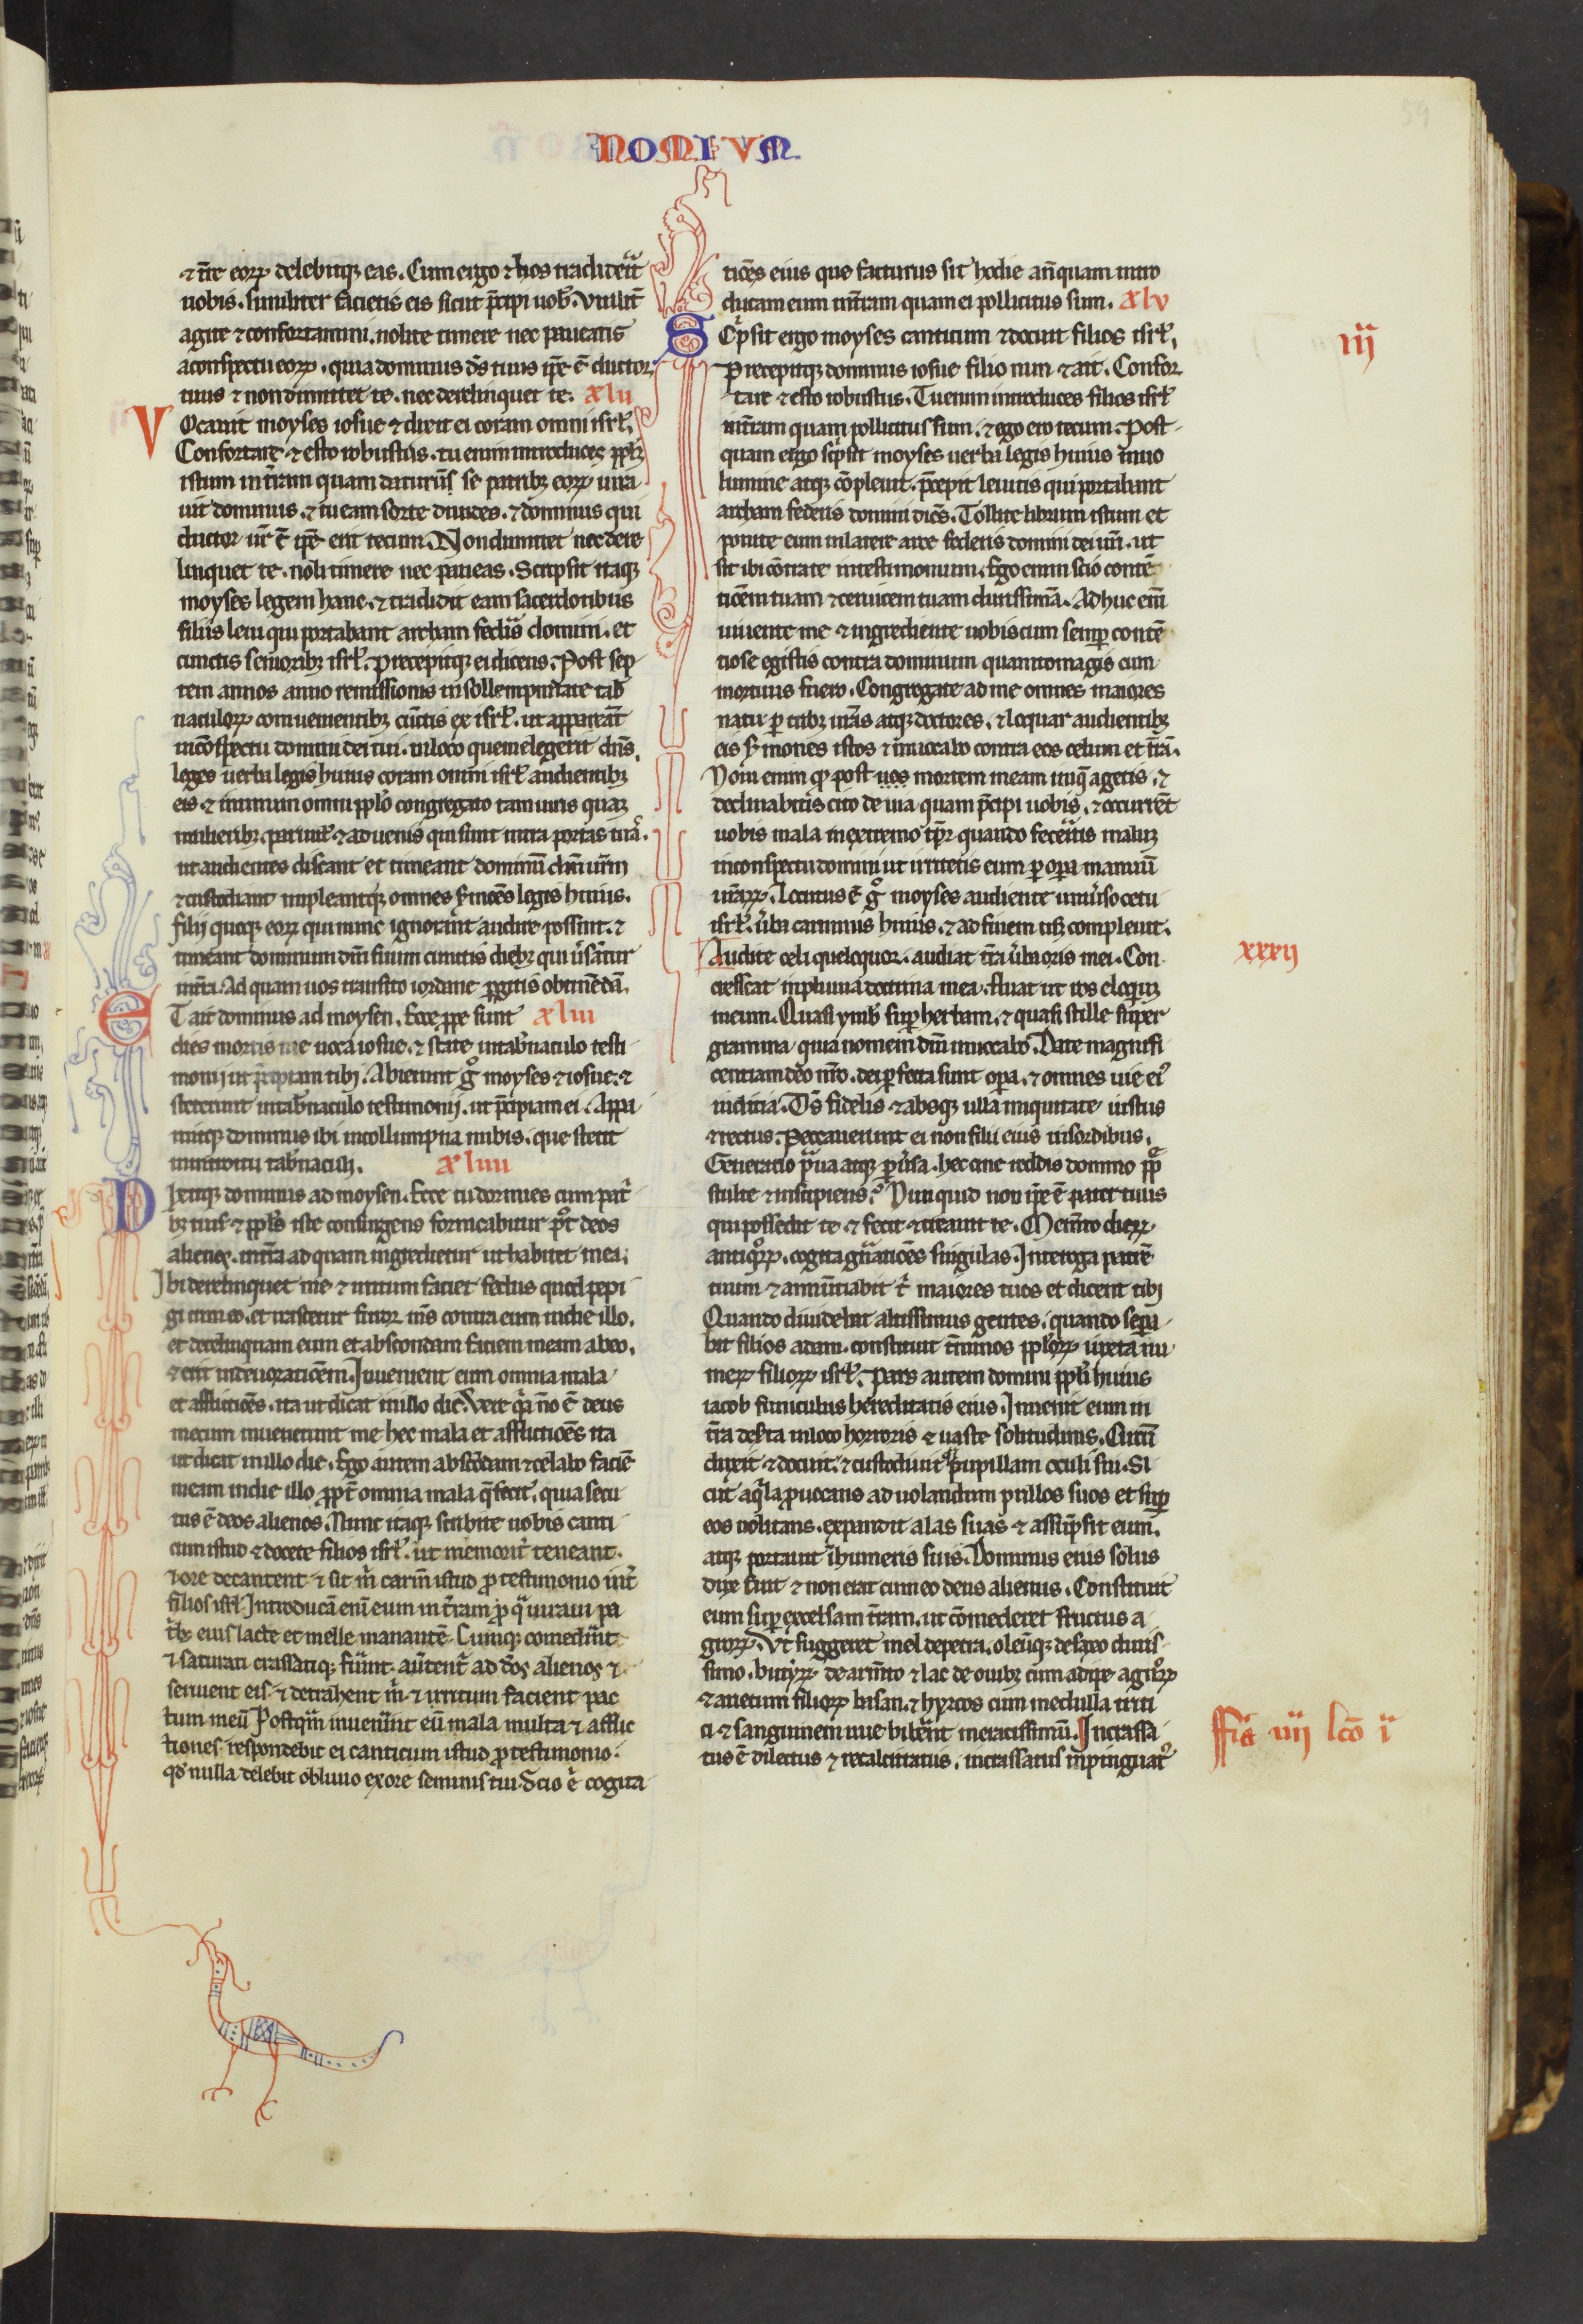 NOMIVM
⁊ t̄re eoꝝ delebitqꝫ eas. Cum ergo ⁊ hos tradideͣit
uobis. similiter facietis eis sicut p̄cepi uob̾. Viriliť
agite ⁊ confortamini. nolite timere nec paueatis
a conspectu eoꝝ. quia dominus d̄s tuus ip̄e ē ductor
tuus ⁊ non dimittet te. nec derelinquet te. xlii
VOcauit moyses iosue ⁊ dixit ei coram omni isrl̾.
Confortare ⁊ esto robustus. tu enim introduces pplm̄
istum in t̄ram quam daturū se patribꝫ eoꝝ iura
uit dominus. ⁊ tu eam sorte diuides. ⁊ dominus qui
ductor ur̄ ē ip̄e erit tecum. Non dimittet nec dere
linquet te. noli timere nec paueas. Scripsit itaqꝫ
moyses legem hanc. ⁊ tradidit eam sacerdotibus
filiis leui qui portabant archam fed̾is domini. et
cunctis senioribꝫ isrl̾. precepitqꝫ ei dicens. Post sep
tem annos anno remissionis in sollempnitate tab̾
naculoꝝ conuenientibꝫ cūctis ex isrl̾. ut appareāt
in cōspectu domini dei tui. in loco quem elegerit dn̄s.
leges uerba legis huius coram omni isrl̾ audientibꝫ
eis ⁊ in unum omni pplo̾ congregato tam uiris quam
mulieribꝫ. paruul̾. ⁊ aduenis qui sunt intra portas tuas.
ut audientes discant et timeant dominū dm̄ ur̄m
⁊ custodiant impleantqꝫ omnes s̾mōes legis huius.
filii quoqꝫ eoꝝ qui nunc ignorant audire possint. ⁊
timeant dominum dm̄ suum cunctis diebꝫ qui u̾sāt̾ur
in t̄ra. Ad quam uos transito iordane ꝑgitis obtinēdā.
ET ait dominus ad moysen. Ecce ꝓpe sunt xliii
dies mortis tue uoca iosue. ⁊ state in tab̾naculo testi
monii ut p̄cipiam tibi. Abierunt gͦ moyses ⁊ iosue. ⁊
steterunt in tab̾naculo testimonij. ut p̄cipiam ei. Appa
ruitqꝫ dominus ibi in collumpna nubis. que stetit
in introitu tab̾naculi. xliiii
DIxitqꝫ dominus ad moysen. Ecce tu dormies cum pat̾
bꝫ tuis ⁊ ppl̄s iste consurgens fornicabitur pꝰt deos
alienos. in t̄ra ad quam ingredietur ut habitet in ea.
Ibi derelinquet me ⁊ irritum faciet fedus quod pepi
gi cum eo. et irascetur furor ms̄ contra eum in die illo.
et derelinquam eum et abscondam faciem meam ab eo.
⁊ erit in deuoratiōem. Inuenient eum omnia mala
et afflictiōes. ita ut dicat in illo die. Vere qͣ nō ē deus
mecum inuenerunt me hec mala et afflictiōes ita
ut dicat in illo die. Ego autem abscōdam ⁊ celabo faciē
meam in die illo ꝓpt̾ omnia mala q̄ fecit. quia secu
tus ē deos alienos. Nunc itaqꝫ scribite uobis canti
cum istud ⁊ docete filios isrl̾. ut memorit̾ teneant.
⁊ ore decantent ⁊ sit m̄ carm̄ istud pro testimonio int̾
filios isrl̾. Introducā enī eum in t̄ram pro qͣ iuraui pa
t̾bꝫ eius lacte et melle manantē. Cumqꝫ comed̾int
⁊ saturati crassatiqꝫ fu̾int. au̾tent̾ ad dōs alienos ⁊
seruient eis ⁊ detrahent m̄ ⁊ irritum facient pac
tum meū. Postqͣm inuen̾int eū mala multa ⁊ afflic
tiones respondebit ei canticum istud pro testimonio.
qd̾ nulla delebit obliuio ex ore seminis tui. Scio ei̾ cogita
tiōes eius que facturus sit hodie an̄quam intro
ducam eum in t̄ram quam ei pollicitus sum. xlv
SCpͥsit ergo moyses canticum ⁊ docuit filios isrl̾.
Precepitqꝫ dominus iosue filio nun ⁊ ait. Confor
tare ⁊ esto robustus. Tu enim introduces filios isrl̾
in t̄ram quam pollicitus sum. ⁊ ego ero tecum. Post
quam ergo scpͥsit moyses uerba legis huius in uo
lumine atqꝫ cōpleuit. p̄cepit leuitis qui portabant
archam federis domini dicēs. Tollite librum istum et
ponite eum in latere arce federis domini dei uri. ut
sit ibi contra te in testimonium. Ego enim scio contē
tiōem tuam ⁊ ceruicem tuam durissimā. Adhuc em̄
uiuente me ⁊ ingrediente uobiscum semꝑ contē
tiose egistis contra dominum quanto magis cum
mortuus fuero. Congregate ad me omnes maiores
natu ꝑ tribꝫ ur̄as atqꝫ doctores. ⁊ loquar audientibꝫ
eis s̾mones istos ⁊ inuocabo contra eos celum et t̄rā.
Noui enim qꝫ post uos mortem meam iniq̄ agetis. ⁊
declinabitis cito de uia quam p̄cepi uobis. ⁊ occurrēt
uobis mala in extremo tp̄r quando fecer̾itis malum
in conspectu domini ut irritetis eum ꝑ oꝑa manuū
ur̄aꝝ. Locutus ē gͦ moyses audiente uniu̾so cetu
isrl̾. u̾ba carminis huius. ⁊ ad finem usqꝫ compleuit.
Audite celi que loquor. audiat t̄ra u̾ba oris mei. Con
crescat in pluuia doctrina mea. fluat ut ros eloquium
meum. Quasi ymb̾ suꝑ herbam. ⁊ quasi stille super
gramina. quia nomen dm̄i inuocabo. Date magnifi
centiam deo nr̄o. dei ꝑfecta sunt oꝑa. ⁊ omnes uie eiꝰ
iudicia. Ds̄ fidelis ⁊ absqꝫ ulla iniquitate. iustus
⁊ rectus. Peccauerunt ei non filii eius in sordibus.
Generatio pͣua atqꝫ ꝑu̾sa. heccine reddis domino ppl̾e
stulte ⁊ insipiens. Nunquid non ip̄e ē pater tuus
qui possedit te ⁊ fecit ⁊ creauit te. Memto̾ dieꝝ
antiqͦꝝ. cogita gn̾atiōes singulas. Interroga patrē
tuum ⁊ annūtiabit tͥ maiores tuos et dicent tibi
Quando diuidebat altissimus gentes. quando seꝑa
bat filios adam. constituit t̾minos pploꝝ iuxta nu
meꝝ filioꝝ isrl̾. Pars autem domini ppl̾s huius
iacob funiculus hereditatis eius. Inuenit eum in
t̄ra des̾ta in loco horroris ⁊ uaste solitudinis. Circū
duxit ⁊ docuit ⁊ custodiuit qͣ pupillam oculi sui. Si
cut aqͥla ꝓuocans ad uolandum pullos suos et suꝑ
eos uolitans. expandit alas suas ⁊ assūpsit eum.
atqꝫ portauit ī humeris suis. Dominus eius solus
dux fuit ⁊ non erat cum eo deus alienus. Constituit
eum suꝑ excelsam t̄ram. ut cōmederet fructus a
groꝝ. Vt suggeret mel de petra. oleūqꝫ de saxo duris
simo. butyꝝ de arm̄to ⁊ lac de ouibꝫ cum adipe agnoꝝ
⁊ arietum filioꝝ basan. ⁊ hyrcos cum medulla triti
ci ⁊ sanguinem uue biber̾et meracissimū. Incrassa
tus ē dilectus ⁊ recalcitratus. incrassatus inpinguatꝰ
iij
xxxij
ffͣia iiij lcō i